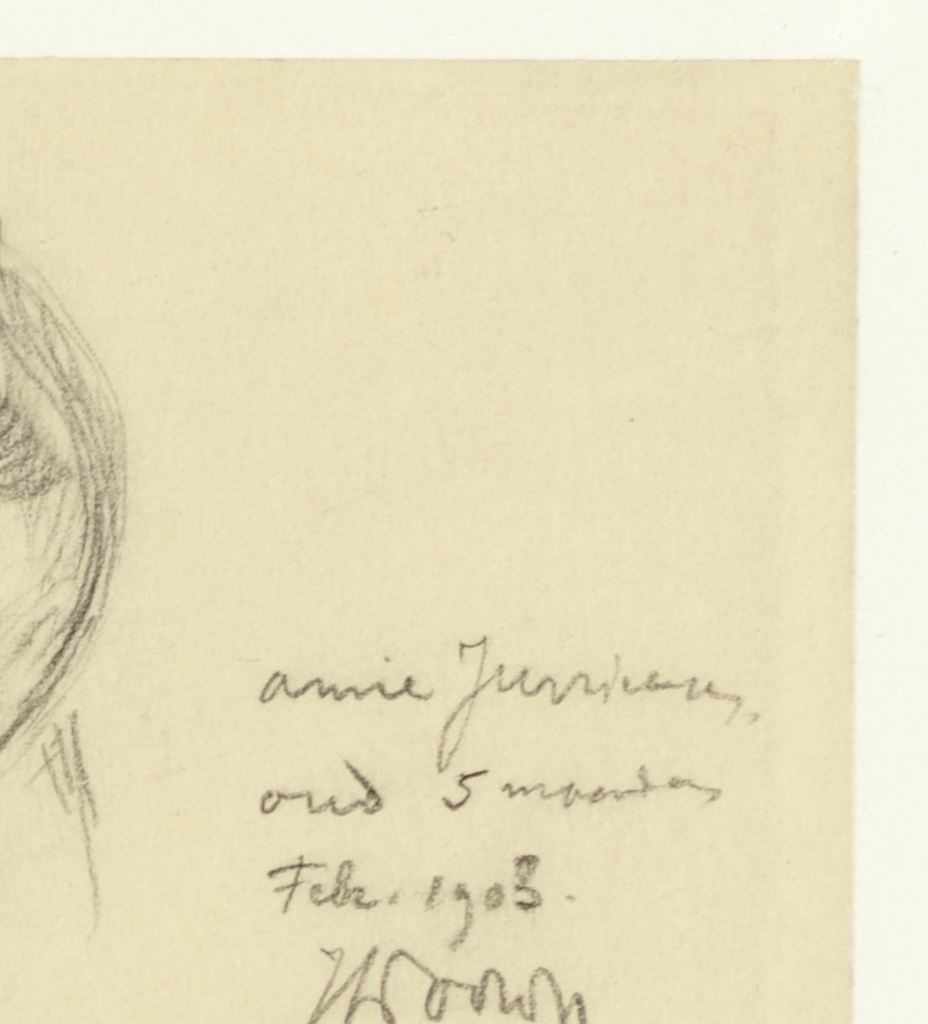 annie Jurriaan,
oud 5 maanden
Febr. 1903.